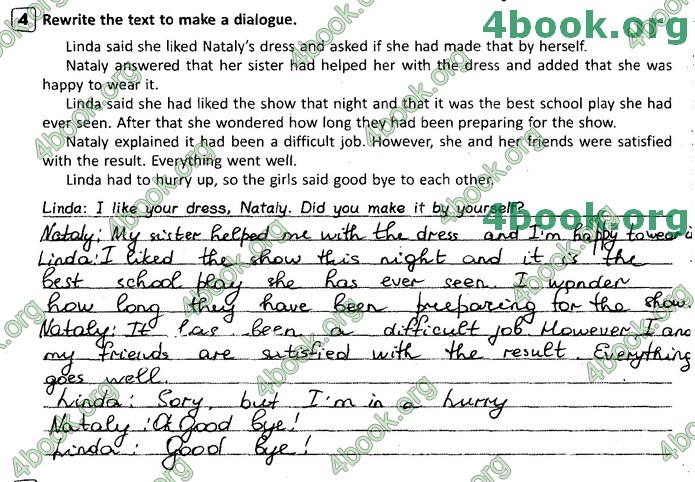 4 Rewrite the text to make a dialogue.
4book.org
Linda said she liked Nataly's dress and asked if she had made that by herself.
Nataly answered that her sister had helped her with the dress and added that she was
happy to wear it.
Linda said she had liked the show that night and that it was the best school play she had
ever seen. After that she wondered how long they had been preparing for the show.
Nataly explained it had been a difficult job. However, she and her friends were satisfied
with the result. Everything went well.
Linda had to hurry up, so the girls said good bye to each other.
Linda: I like your dress, Nataly. Did you make it by yourself?
4book.org
Nataly: My sister helped me with the dress and I'm happy to wear i
Linda: I liked the show this night and it is the
best school play she has ever seen. I wonder
how long they have been preeparing for the show.
Nataly: It has been a difficult job. However I and
my friends are satisfied with the result. Everything
goes well.
Linda: Sory, but I'm in a hurry
Nataly: Good bye!
Linda: Good bye!
4book.org